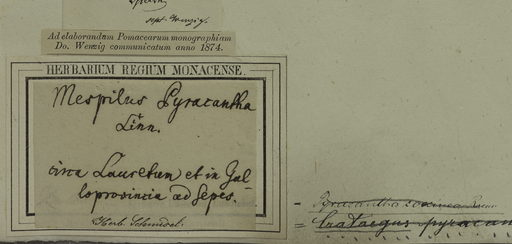 sept. Wenzig.
Ad elaborandum Pomacearum monographiam
Do. Wenzig communicatum anno 1874.
HERBARIUM REGIUM MONACENSE.
Mespilus Pyracantha
Linn.
circa Lauretum et in Gal-
loprovincia ad sepes.
Herb. Schmidel.
= Pyracantha coccinea Roem.
= Crataegus pyracan